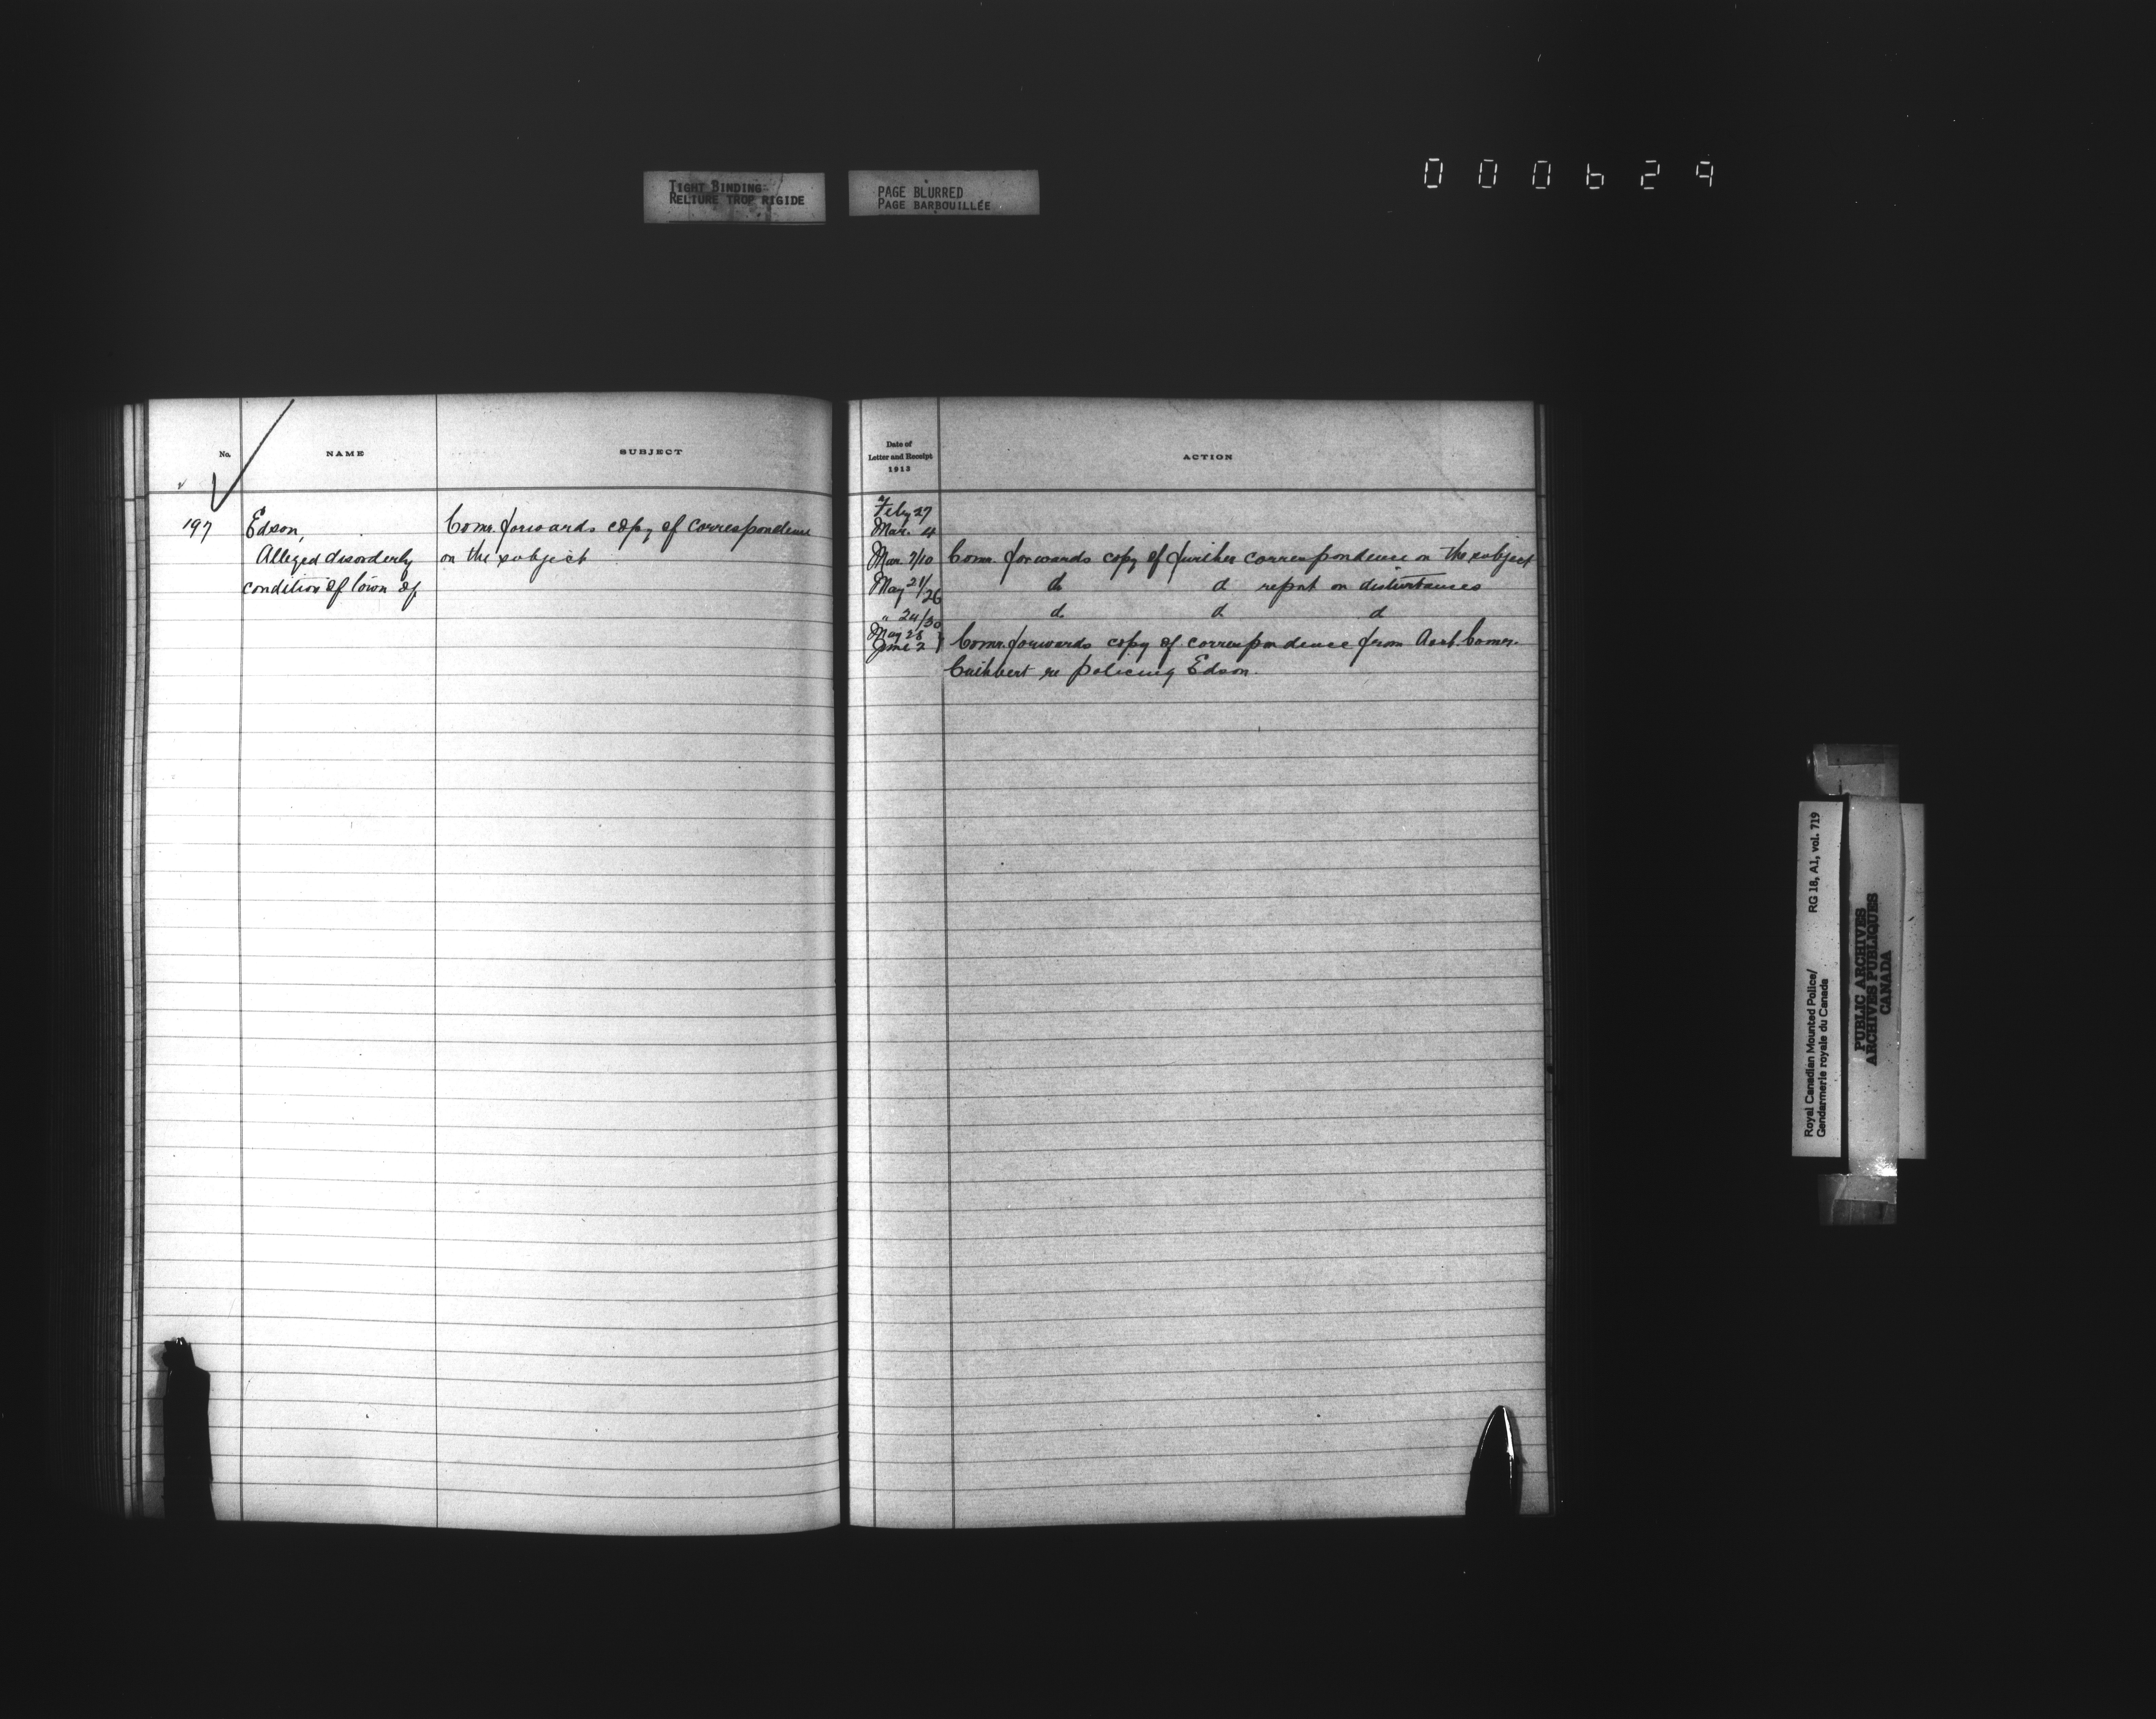 TIGHT BINDING
RELIURE TROP RIGIDE
PAGE BLURRED
PAGE BARBOUILLÉE
000629
No.
NAME
SUBJECT
197
Edson,
Alleged disorderly
condition of town of
Comr. forwards copy of correspondence
on the subject
Date of
Letter and Receipt
1913
ACTION
Feby 27
Mar. 4
Mar. 7/10 Comr. forwards copy of further correspondence on the subject
May 21/26 do d report on disturbances
" 24/30 d d d
May 28
June 2 } Comr. forwards copy of correspondence from Asst. Comr.
Cuthbert re policing Edson.
Royal Canadian Mounted Police/ RG 18, A1, vol. 719
Gendarmerie royale du Canada
PUBLIC ARCHIVES
ARCHIVES PUBLIQUES
CANADA